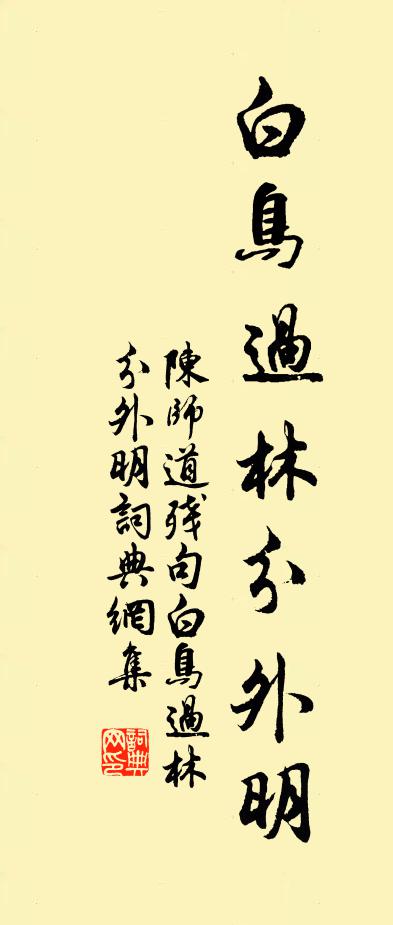 白鳥過林分外明
陳師道残句白鳥過林
分外明詞典網集
詞典网印